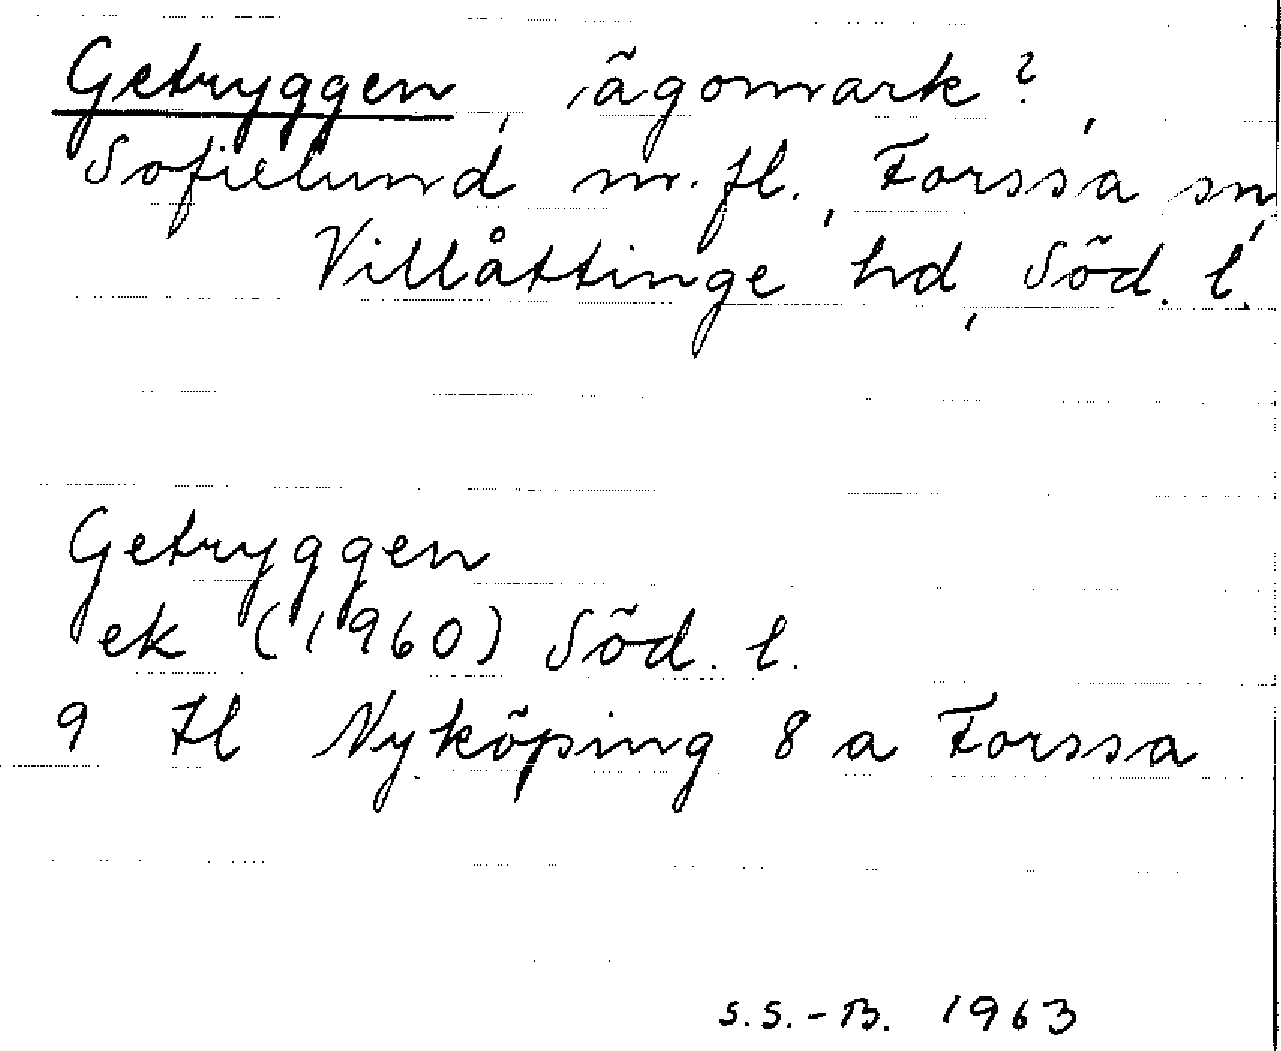 Getryggen, ägomark?,
Sofielund m. fl., Forssa sn,
Villåttinge hd, Söd. l.
Getryggen
ek (1960) Söd. l.
9 Il Nyköping 8 a Forssa
S.S.-B. 1963